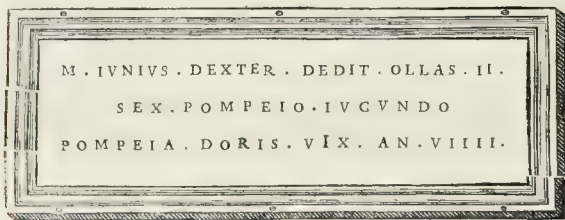 M . IVNIVS . DEXTER . DEDIT . OLLAS . II .
SEX . POMPEIO . IVCVNDO
POMPEIA . DORIS . VIX . AN . VIIII .